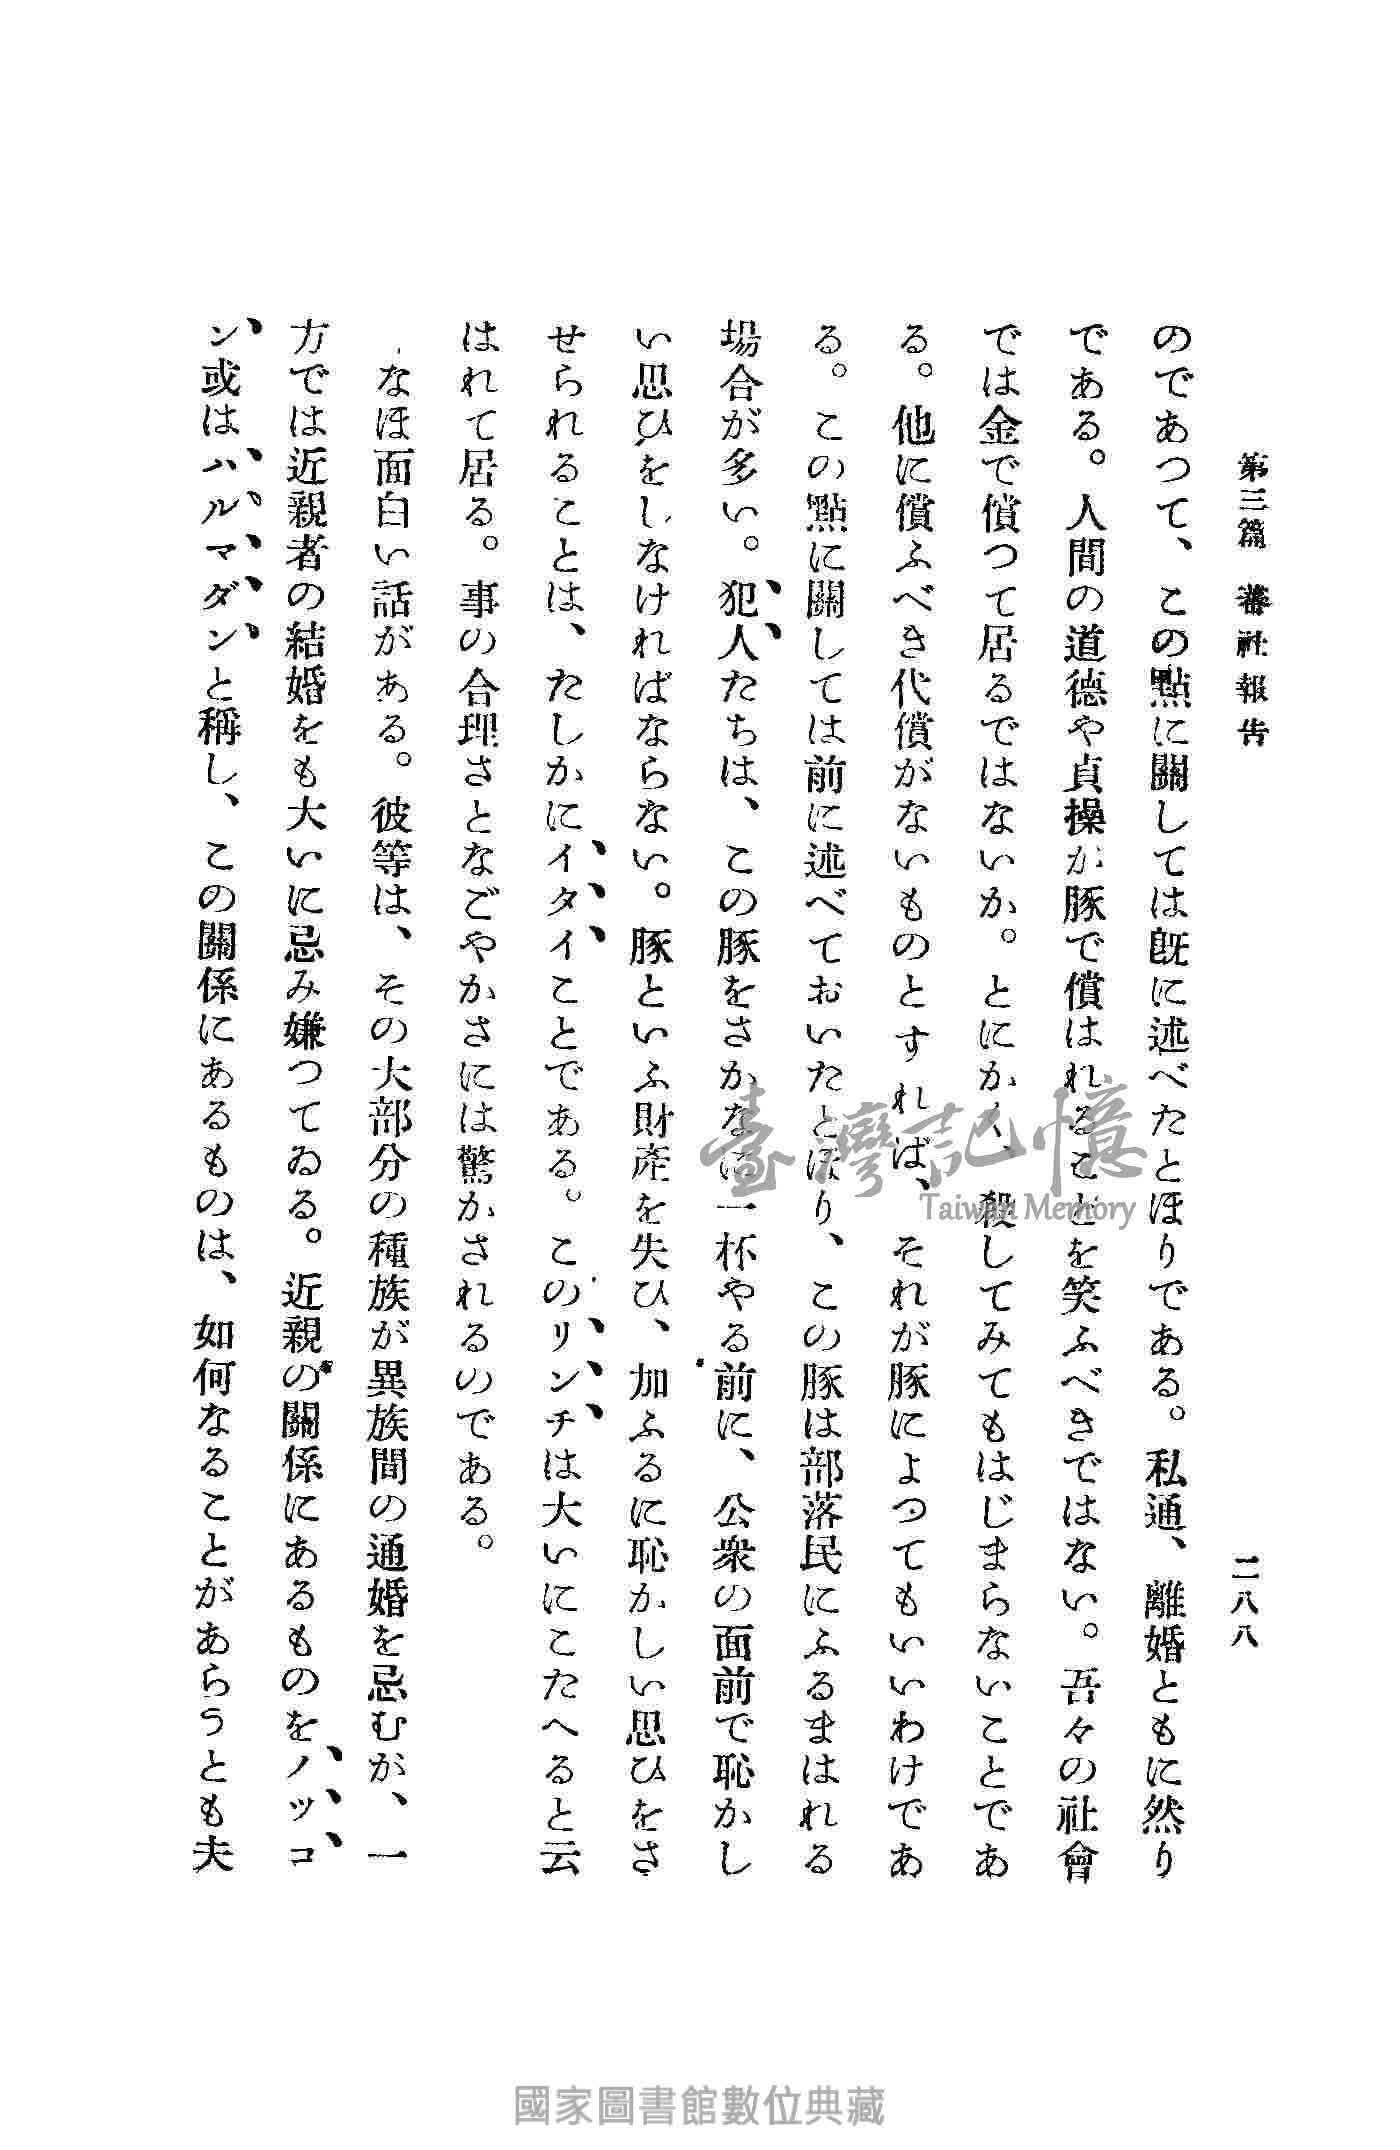 第三篇　蕃社報告
二八八
のであつて、この點に關しては既に述べたとほりである。私通、離婚ともに然り
である。人間の道德や貞操が豚で償はれることを笑ふべきではない。吾々の社會
では金で償つて居るではないか。とにかく、殺してみてもはじまらないことであ
る。他に償ふべき代償がないものとすれば、それが豚によつてもいいわけであ
る。この點に關しては前に述べておいたとほり、この豚は部落民にふるまはれる
場合が多い。犯人たちは、この豚をさかなに一杯やる前に、公衆の面前で恥かし
い思ひをしなければならない。豚といふ財產を失ひ、加ふるに恥かしい思ひをさ
せられることは、たしかにイタイことである。このリンチは大いにこたへると云
はれて居る。事の合理さとなごやかさには驚かされるのである。
なほ面白い話がある。彼等は、その大部分の種族が異族間の通婚を忌むが、一
方では近親者の結婚をも大いに忌み嫌つてゐる。近親の關係にあるものをノツコ
ン或はハルマダンと稱し、この關係にあるものは、如何なることがあらうとも夫
臺灣記憶
Taiwan Memory
國家圖書館數位典藏